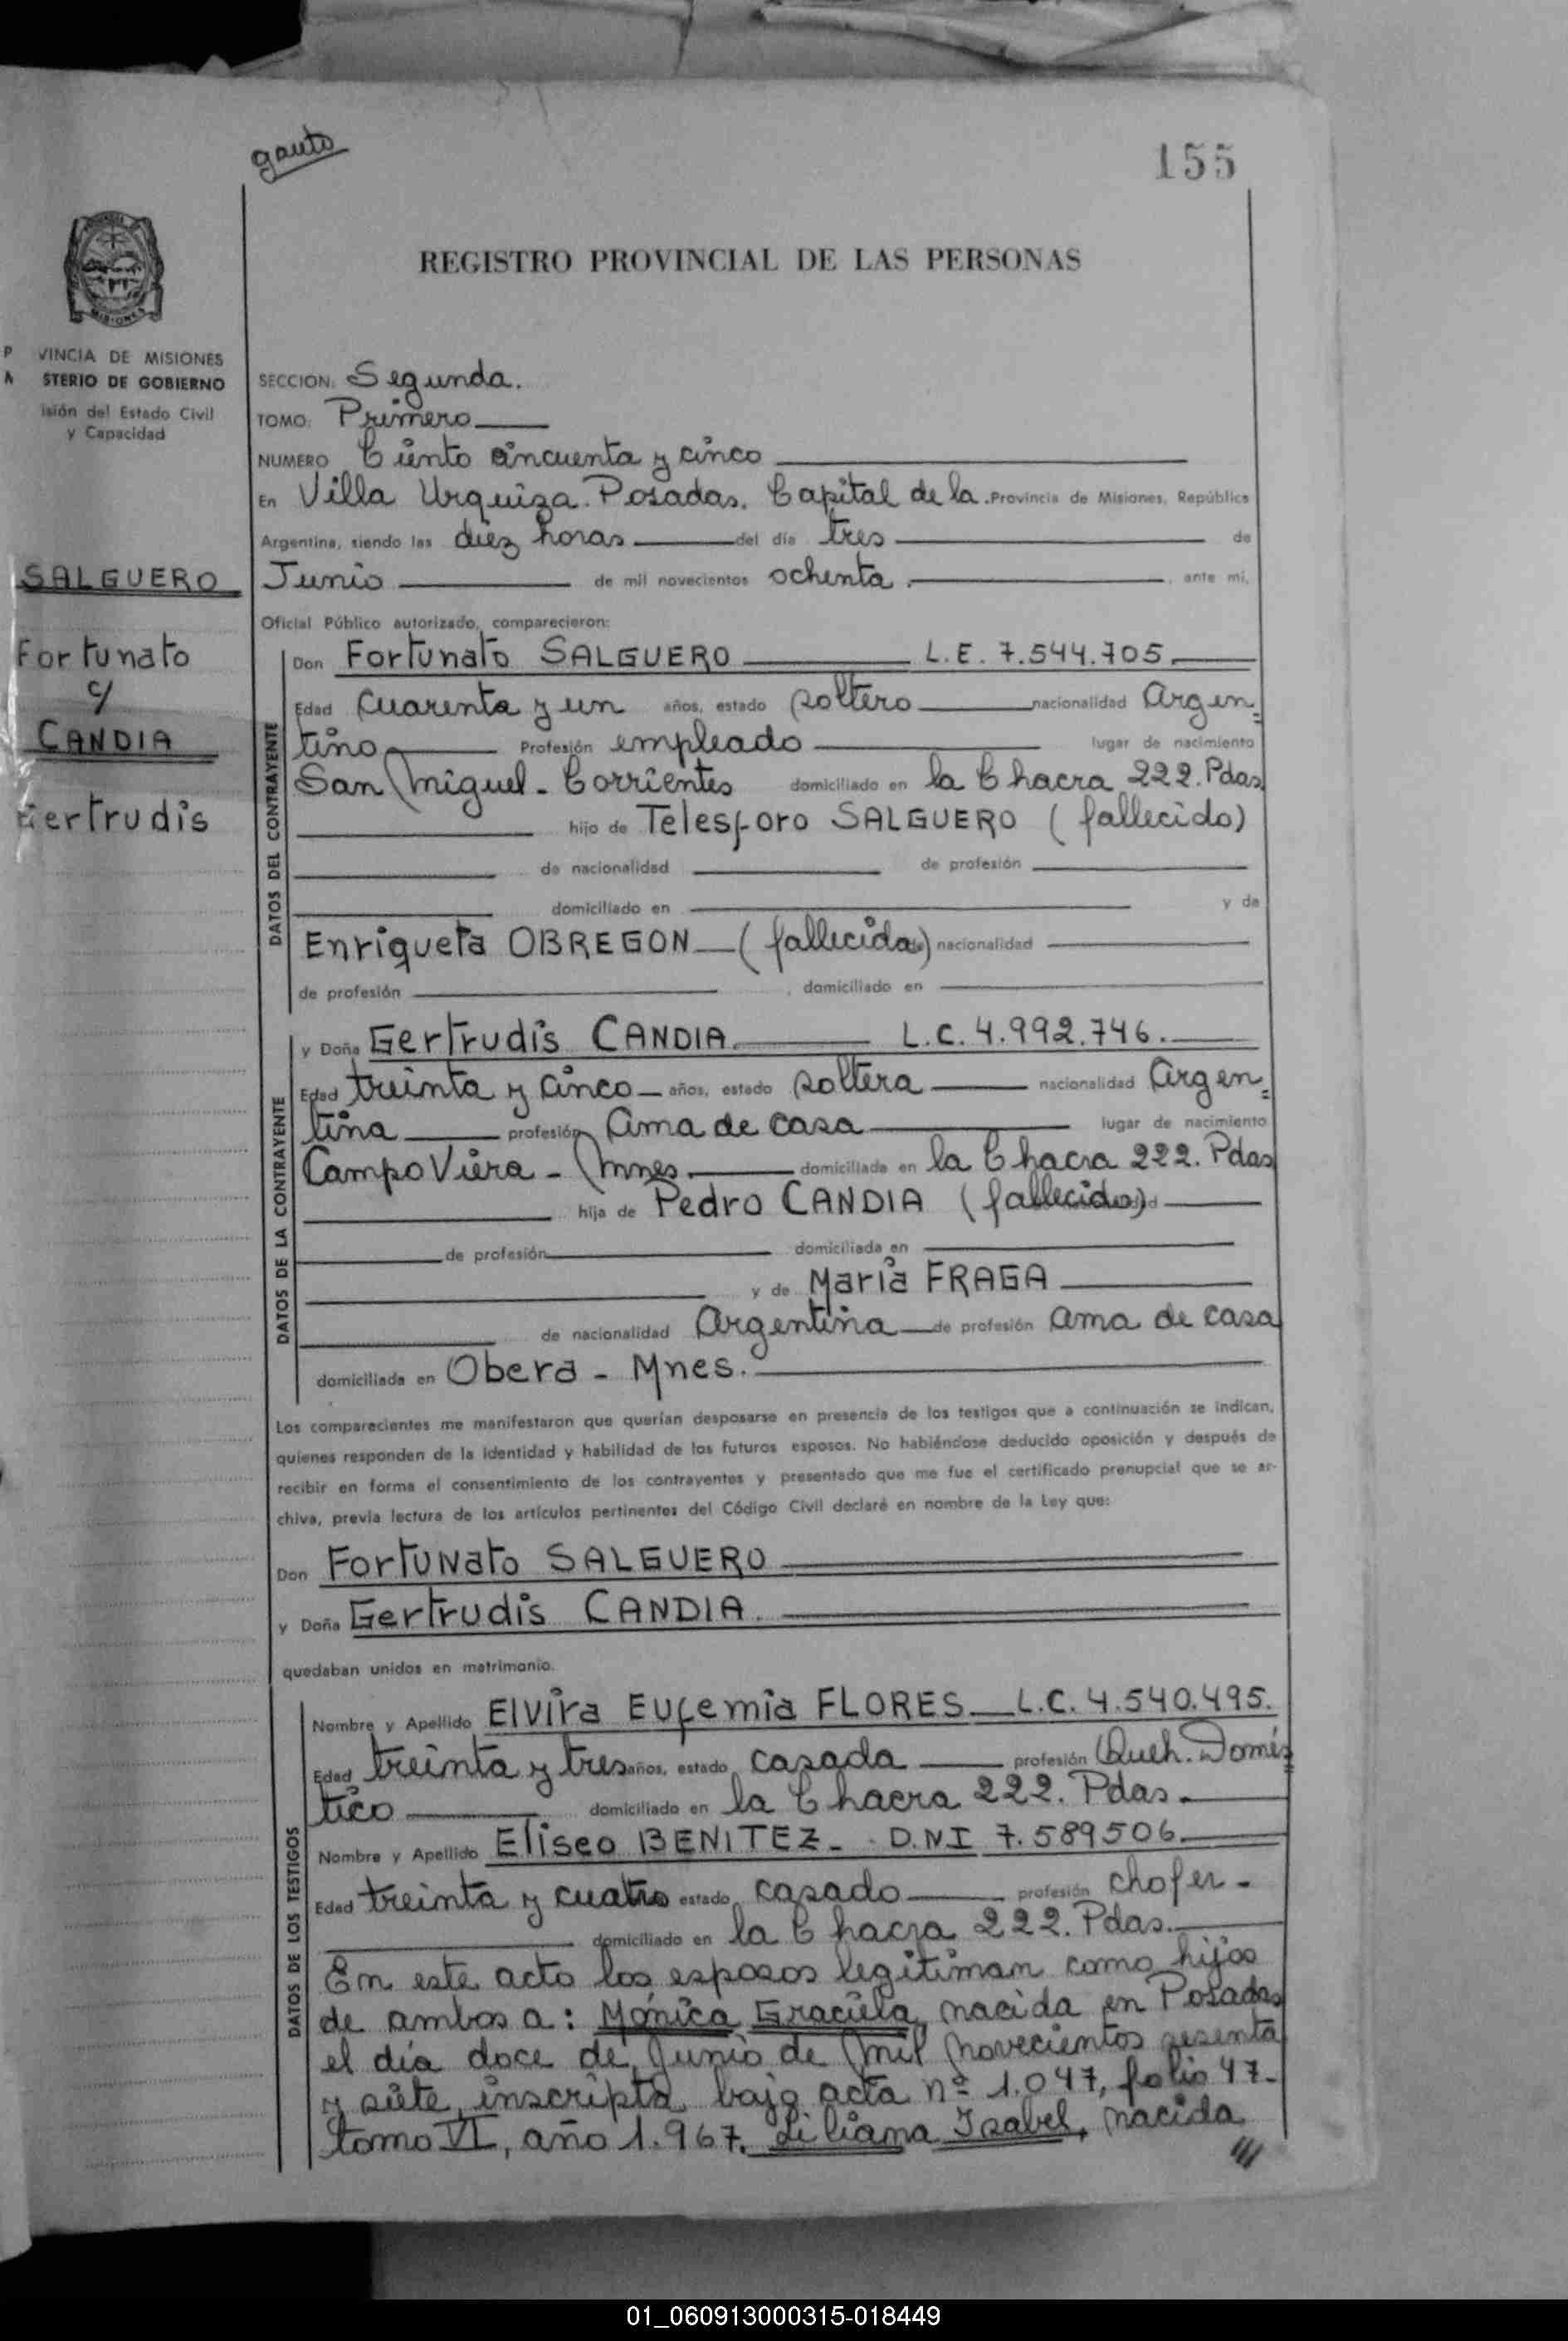 gauto
155
REGISTRO PROVINCIAL DE LAS PERSONAS
P VINCIA DE MISIONES
STERIO DE GOBIERNO
isión del Estado Civil
y Capacidad
SALGUERO
Fortunato
c/
CANDIA
Gertrudis
SECCION: Segunda.
TOMO: Primero
NUMERO Ciento cincuenta y cinco
En Villa Urquiza. Posadas. Capital de la Provincia de Misiones, República
Argentina, siendo las diez horas del día tres de
Junio de mil novecientos ochenta, ante mi,
Oficial Público autorizado, comparecieron:
DATOS DEL CONTRAYENTE
Don Fortunato SALGUERO L.E. 7.544.705
Edad Cuarenta y un años, estado soltero nacionalidad Argen=
tino Profesión empleado lugar de nacimiento
San Miguel - Corrientes domiciliado en la Chacra 222. Pdas
hijo de Telesforo SALGUERO (fallecido)
de nacionalidad de profesión
domiciliado en y de
Enriqueta OBREGON (fallecida) nacionalidad
de profesión, domiciliado en
DATOS DE LA CONTRAYENTE
y Doña Gertrudis CANDIA. L.C. 4.992.746.
Edad treinta y cinco años, estado soltera nacionalidad Argen=
tina profesión Ama de casa lugar de nacimiento
Campo Viera - Mnes. domiciliada en la Chacra 222. Pdas
hija de Pedro CANDIA (fallecido)
de profesión domiciliada en
y de María FRAGA
de nacionalidad Argentina de profesión ama de casa
domiciliada en Obera - Mnes.
Los comparecientes me manifestaron que querían desposarse en presencia de los testigos que a continuación se indican,
quienes responden de la identidad y habilidad de los futuros esposos. No habiéndose deducido oposición y después de
recibir en forma el consentimiento de los contrayentes y presentado que me fue el certificado prenupcial que se ar-
chiva, previa lectura de los artículos pertinentes del Código Civil declaré en nombre de la Ley que:
Don Fortunato SALGUERO
y Doña Gertrudis CANDIA.
quedaban unidos en matrimonio.
DATOS DE LOS TESTIGOS
Nombre y Apellido Elvira Eufemia FLORES L.C. 4.540.495.
Edad treinta y tres años, estado casada profesión Queh. Domés=
tico domiciliado en la Chacra 222. Pdas.
Nombre y Apellido Eliseo BENITEZ - D.N.I 7.589506.
Edad treinta y cuatro estado casado profesión chofer -
domiciliado en la Chacra 222. Pdas.
En este acto los esposos legitiman como hijos
de ambos a: Mónica Graciela, nacida en Posadas
el día doce de Junio de mil novecientos sesenta
y siete, inscripta bajo acta nº 1.047, folio 47-
tomo VI, año 1.967. Liliana Isabel, nacida
///
01_060913000315-018449